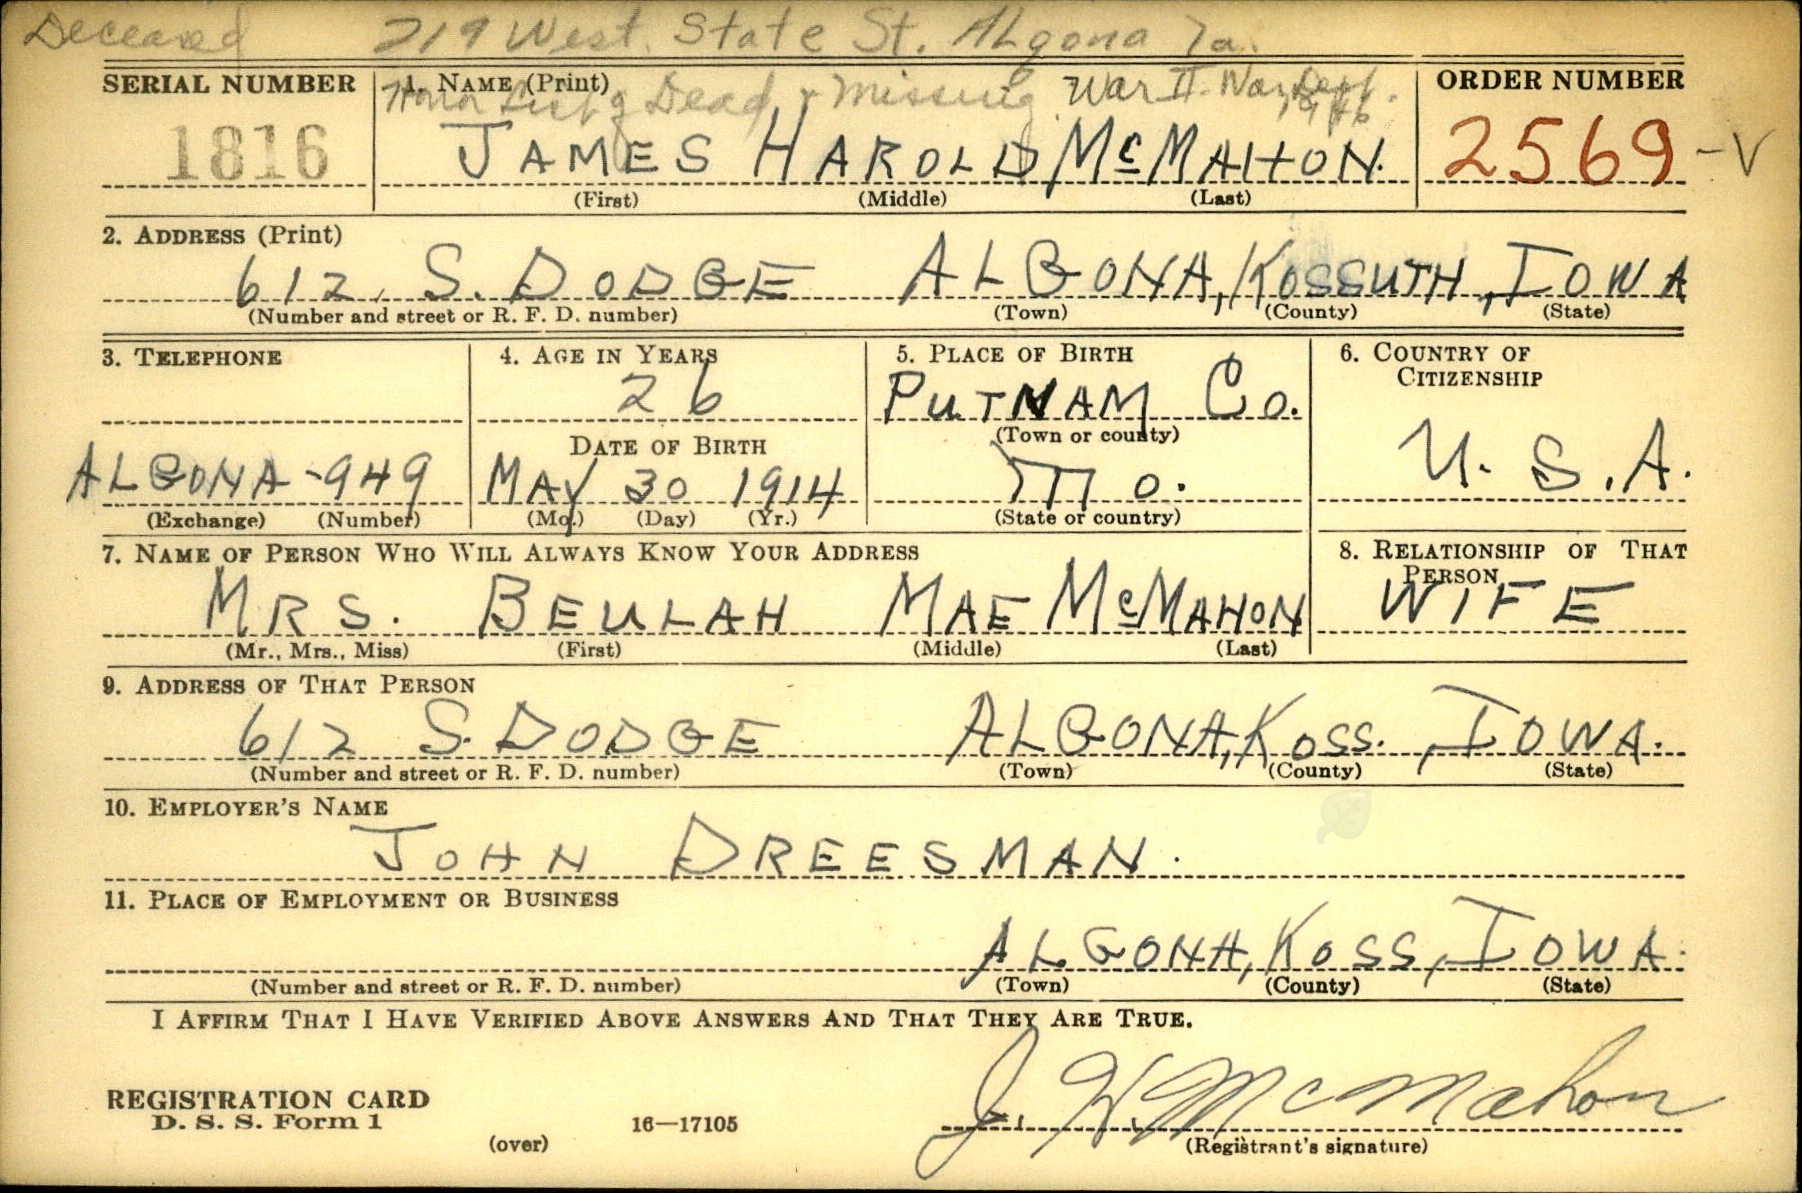 Deceased 219 West State St. Algona Ia.
SERIAL NUMBER 1. NAME (Print) ORDER NUMBER
Honor List of Dead & Missing War II - War Dept. 1946
1816 JAMES HAROLD McMAHON. 2569-V
(First) (Middle) (Last)
2. ADDRESS (Print)
612 S. DODGE ALGONA, KOSSUTH, IOWA
(Number and street or R. F. D. number) (Town) (County) (State)
3. TELEPHONE 4. AGE IN YEARS 5. PLACE OF BIRTH 6. COUNTRY OF
CITIZENSHIP
26 PUTNAM Co.
(Town or county)
DATE OF BIRTH
ALGONA-949 MAY 30 1914 Mo. U.S.A.
(Exchange) (Number) (Mo.) (Day) (Yr.) (State or country)
7. NAME OF PERSON WHO WILL ALWAYS KNOW YOUR ADDRESS 8. RELATIONSHIP OF THAT
PERSON
MRS. BEULAH MAE McMAHON WIFE
(Mr., Mrs., Miss) (First) (Middle) (Last)
9. ADDRESS OF THAT PERSON
612 S. DODGE ALGONA, KOSS., IOWA.
(Number and street or R. F. D. number) (Town) (County) (State)
10. EMPLOYER'S NAME
JOHN DREESMAN.
11. PLACE OF EMPLOYMENT OR BUSINESS
ALGONA, KOSS, IOWA.
(Number and street or R. F. D. number) (Town) (County) (State)
I AFFIRM THAT I HAVE VERIFIED ABOVE ANSWERS AND THAT THEY ARE TRUE.
REGISTRATION CARD
D. S. S. Form 1 16—17105 J. H. McMahon
(over) (Registrant's signature)